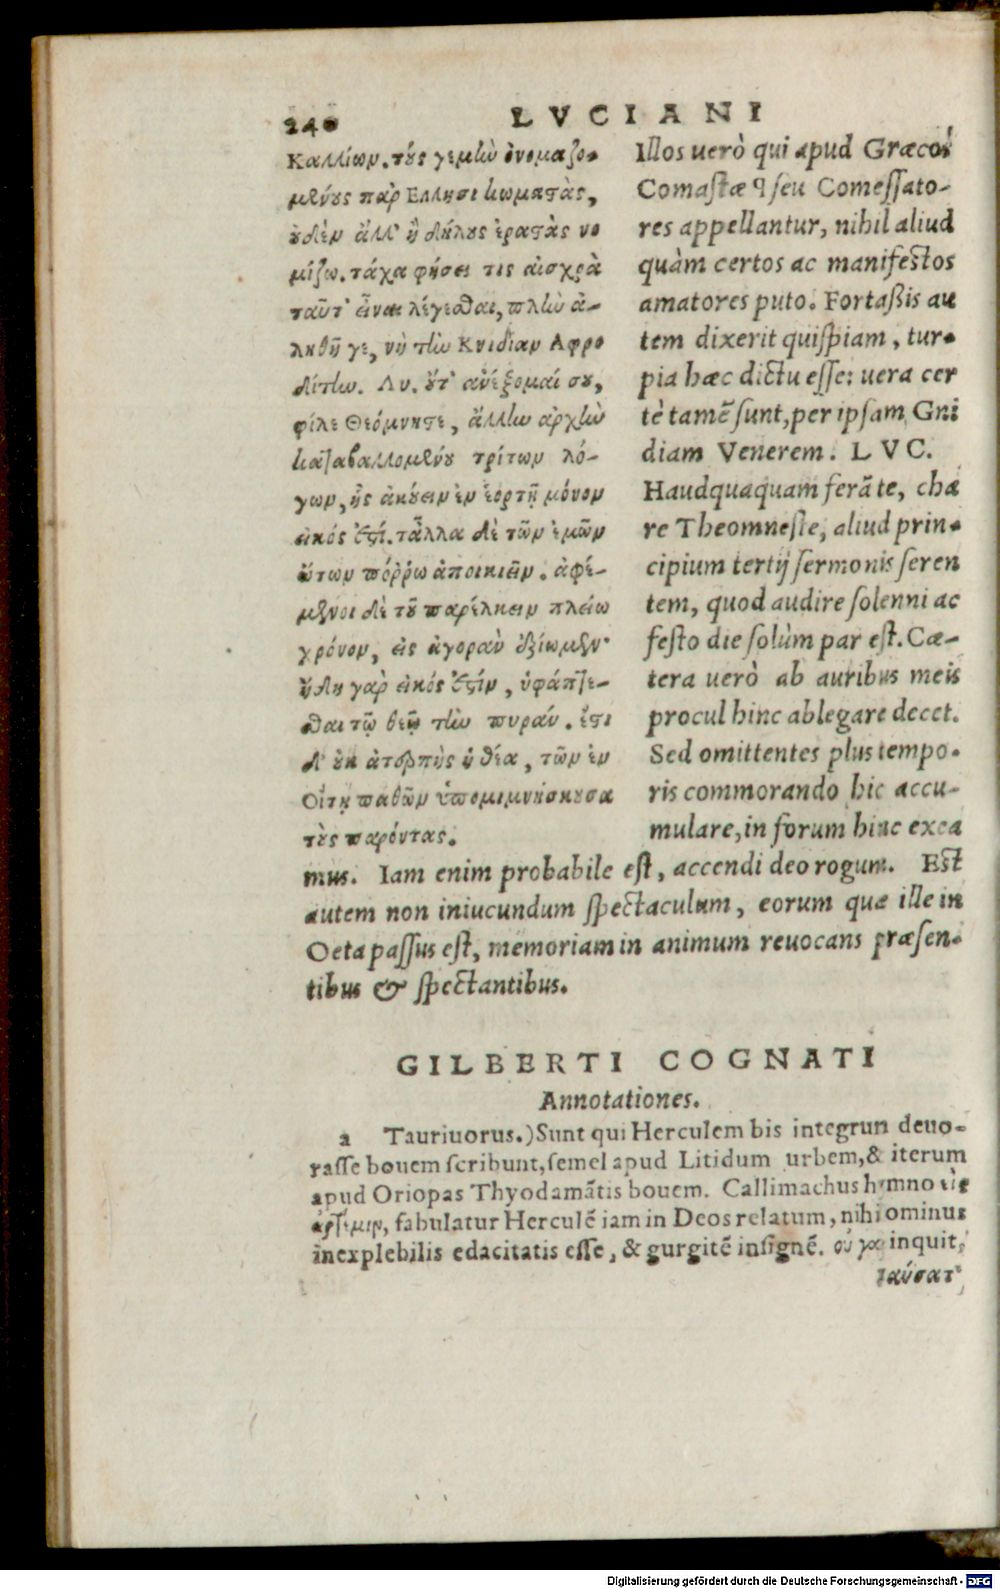 240
LVCIANI
Καλλίων. τοὺς γεμὴν ὀνομαζο-
μένους παρ Ἕλλησι κωμαστὰς,
οὐδὲν ἄλλ' ἢ δήλους ἐραστὰς νο
μίζω. τάχα φήσει τις αἰσχρὰ
ταῦτ' εἶναι λέγεσθαι, πλὴν ἀ-
ληθῆ γε, νὴ τὴν Κνιδίαν Αφρο
δίτην. Λυ. οὔτ' ἀνέξομαί σου,
φίλε Θεόμνηστε, ἄλλην ἀρχὴν
καταβαλλομένου τρίτων λό-
γων, ἧς ἀκούειν ἐν ἑορτῇ μόνον
εἰκός ἐστί. τἆλλα δὲ τῶν ἐμῶν
ὤτων πόῤῥω ἀποικιεῖν. ἀφέ-
μενοι δὲ τοῦ παρέλκειν πλείω
χρόνον, εἰς ἀγορὰν ἐξίωμεν·
ἤδη γὰρ εἰκός ἐστίν, ὑφάπτε-
σθαι τῷ θεῷ τὴν πυράν. ἔστι
δ' οὐκ ἀτερπὴς ἡ θέα, τῶν ἐν
Οἴτῃ παθῶν ὑπομιμνήσκουσα
τοὺς παρόντας.
Illos uerò qui apud Græcos
Comastæ ꝗ seu Comessato-
res appellantur, nihil aliud
quàm certos ac manifestos
amatores puto. Fortaßis au
tem dixerit quispiam, tur-
pia hæc dictu esse: uera cer
tè tamē sunt, per ipsam Gni
diam Venerem. LVC.
Haudquaquam ferā te, cha
re Theomneste, aliud prin-
cipium tertij sermonis seren
tem, quod audire solenni ac
festo die solùm par est. Cæ-
tera uerò ab auribus meis
procul hinc ablegare decet.
Sed omittentes plus tempo-
ris commorando hic accu-
mulare, in forum hinc exea
mus. Iam enim probabile est, accendi deo rogum. Est
autem non iniucundum spectaculum, eorum quæ ille in
Oeta passus est, memoriam in animum reuocans præsen-
tibus & spectantibus.
GILBERTI COGNATI
Annotationes.
a Tauriuorus.) Sunt qui Herculem bis integrun deuo-
rasse bouem scribunt, semel apud Litidum urbem, & iterum
apud Oriopas Thyodamātis bouem. Callimachus hymno εἰς
ἄρτεμιν, fabulatur Herculē iam in Deos relatum, nihiominus
inexplebilis edacitatis esse, & gurgitē insignē. οὐ γὰ inquit,
παύσατ'
Digitalisierung gefördert durch die Deutsche Forschungsgemeinschaft - DFG